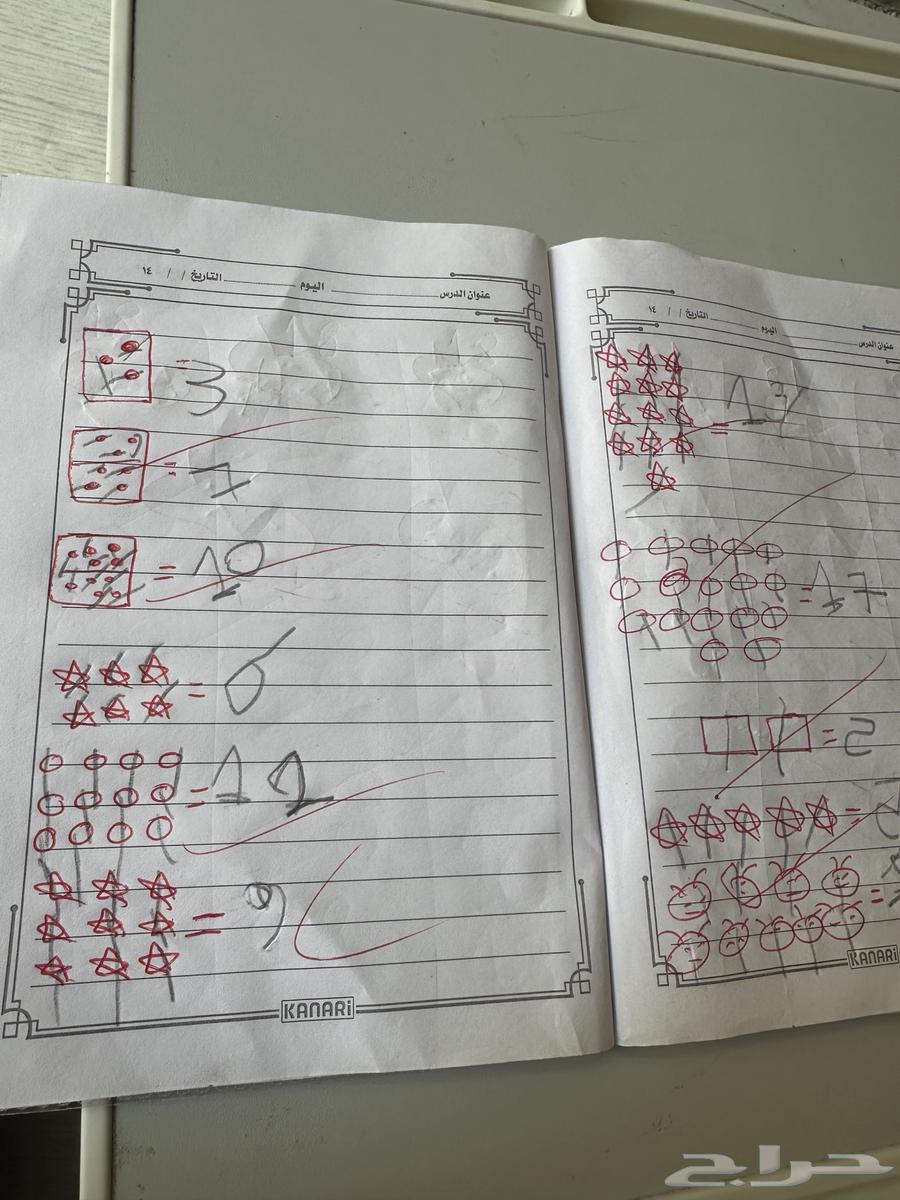 عنوان الدرس اليوم التاريخ / / ١٤
= 3
= 7
= 10
= 6
= 12
= 9
KANARi
عنوان الدرس اليوم التاريخ / / ١٤
= 13
= 17
= 2
=
=
KANARi
حراج